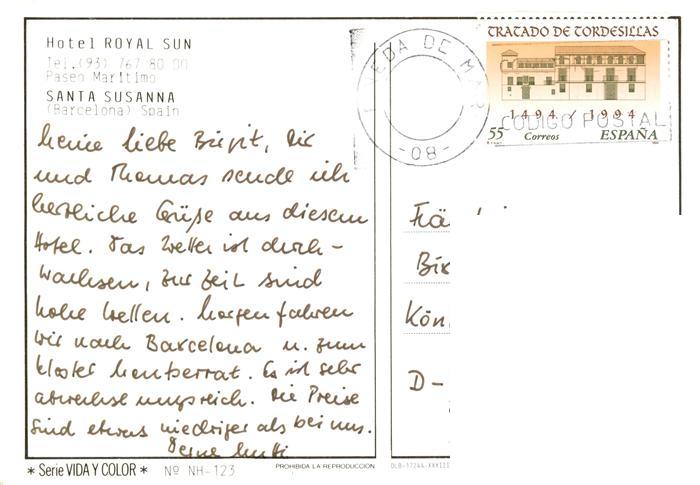 Hotel ROYAL SUN
Tel.(93) 767 80 00
Paseo Marítimo
SANTA SUSANNA
(Barcelona) Spain
TRATADO DE TORDESILLAS
1494 / 1994
CODIGO POSTAL
55 Correos ESPAÑA
-08-
Meine liebe Birgit, Dir
und Thomas sende ich
herzliche Grüße aus diesem
Hotel. Das Wetter ist durch-
wachsen, zur Zeit sind
hohe Wellen. Morgen fahren
wir nach Barcelona u. zum
Kloster Montserrat. Es ist sehr
abwechslungsreich. Die Preise
sind etwas niedriger als bei uns.
Deine Mutti
D-
* Serie VIDA Y COLOR * Nº NH-123
PROHIBIDA LA REPRODUCCIÓN